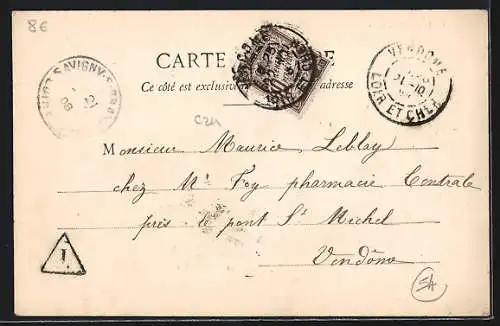 8€
CARTE
Ce côté est exclusiv adresse
SAVIGNY-S-BRAYE
VENDOME
LOIR ET CHER
C24
Monsieur Maurice Leblay
chez Mr Foy pharmacie Centrale
près le pont St Michel
Vendôme
1